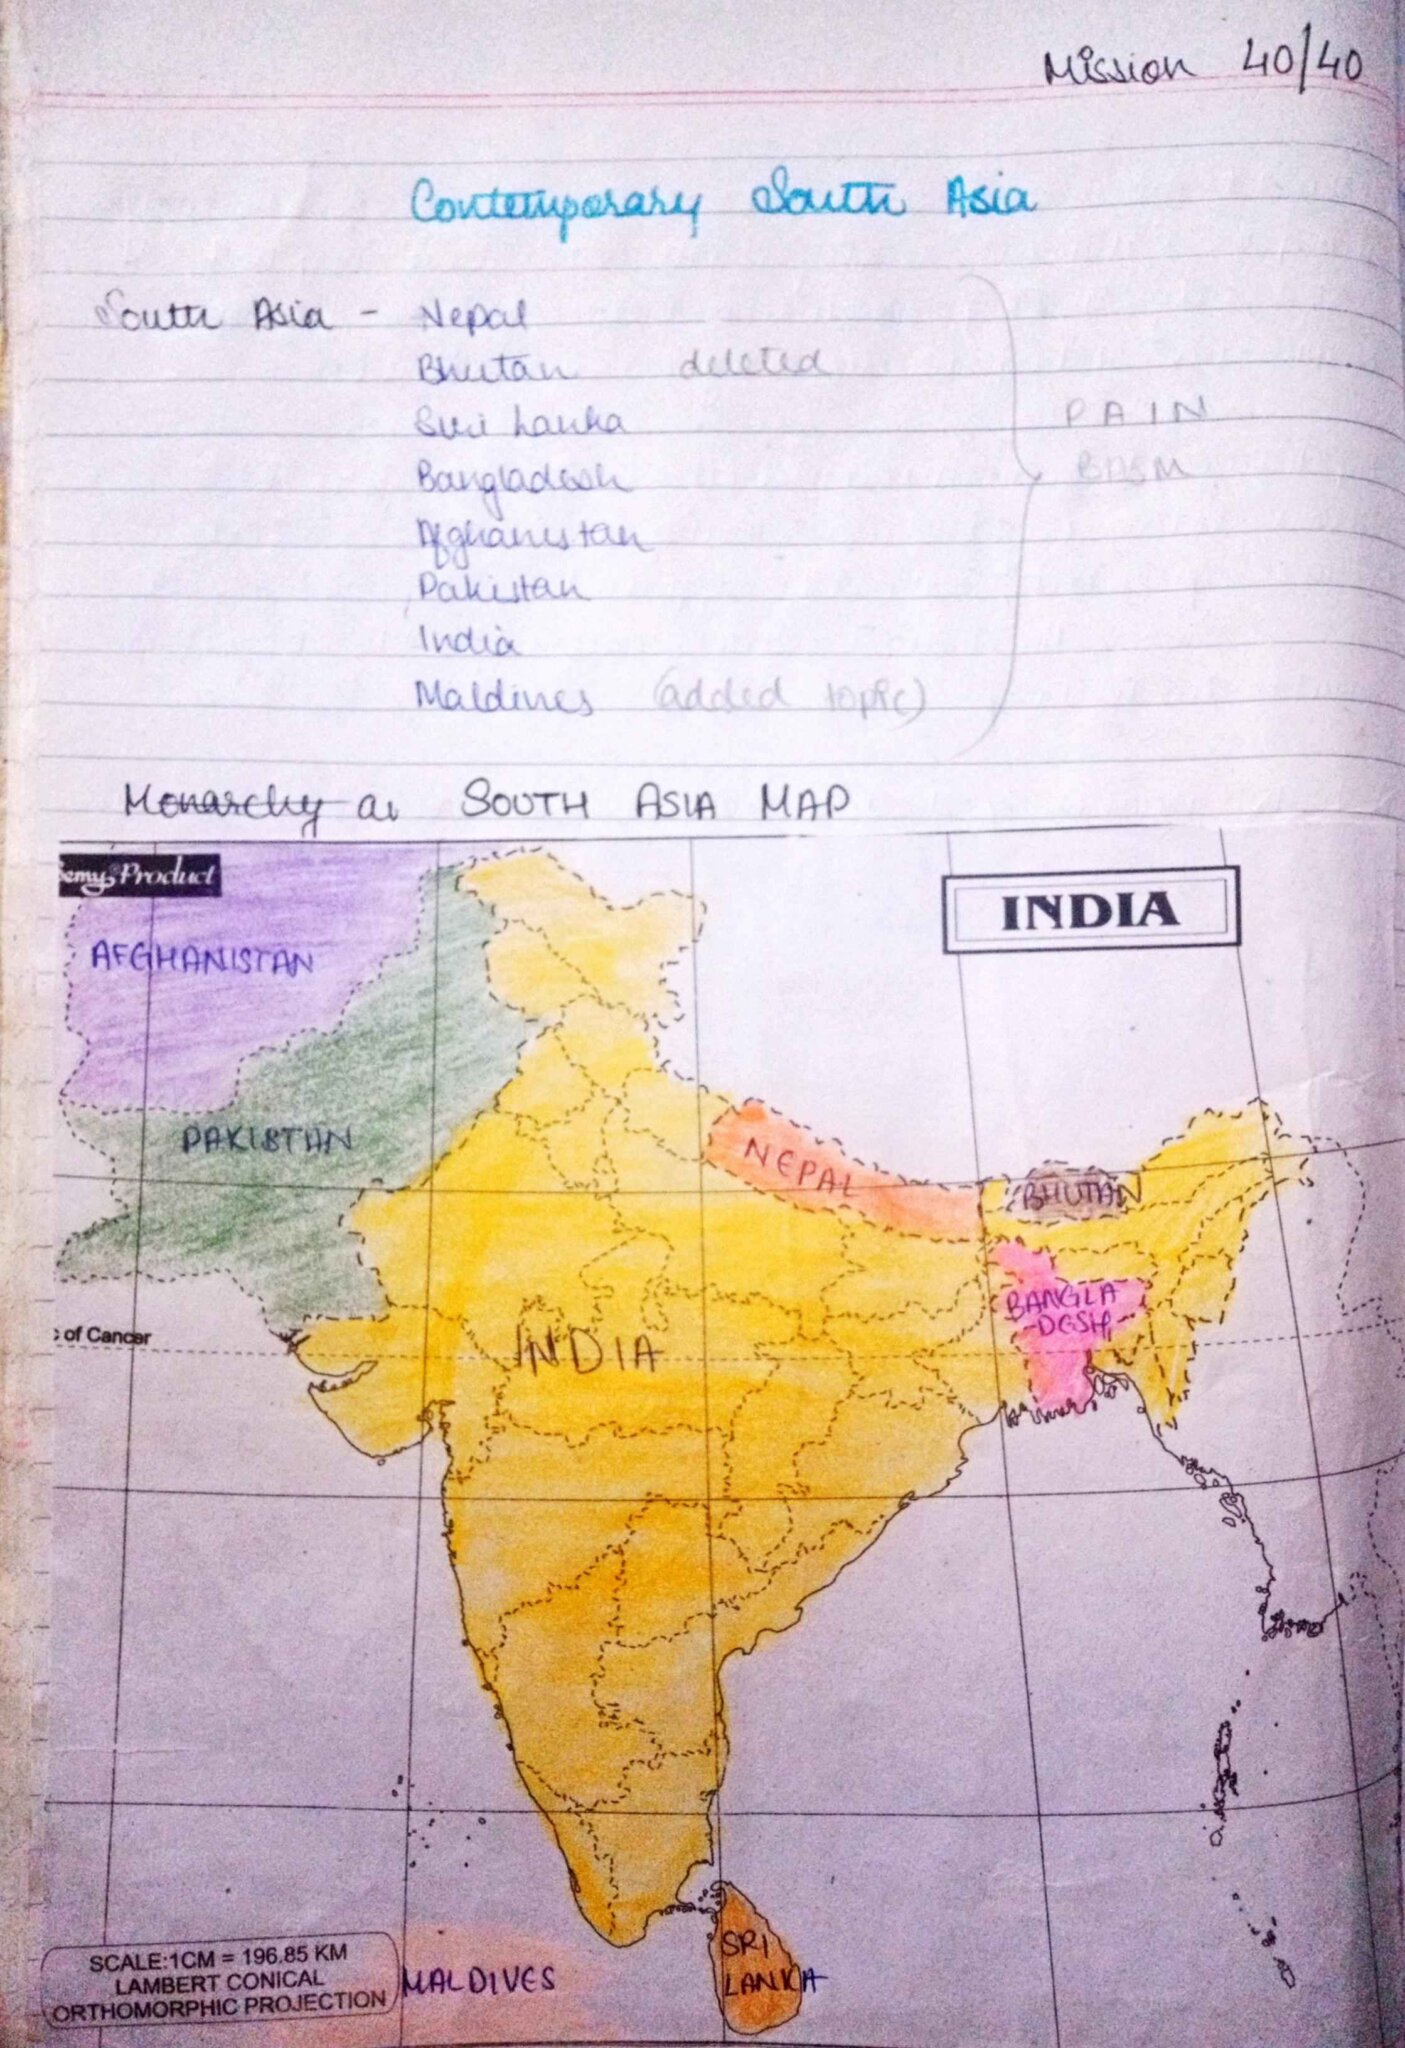 Mission 40/40
Contemporary South Asia
South Asia - Nepal
Bhutan deleted
Sri Lanka
Bangladesh
Afghanistan
Pakistan
India
Maldives (added topic)
PAIN
BASM
Monarchy a SOUTH ASIA MAP
emy Product
INDIA
AFGHANISTAN
PAKISTAN
NEPAL
BHUTAN
BANGLA
DESH
c of Cancer
INDIA
SRI
LANKA
MALDIVES
SCALE:1CM = 196.85 KM
LAMBERT CONICAL
ORTHOMORPHIC PROJECTION